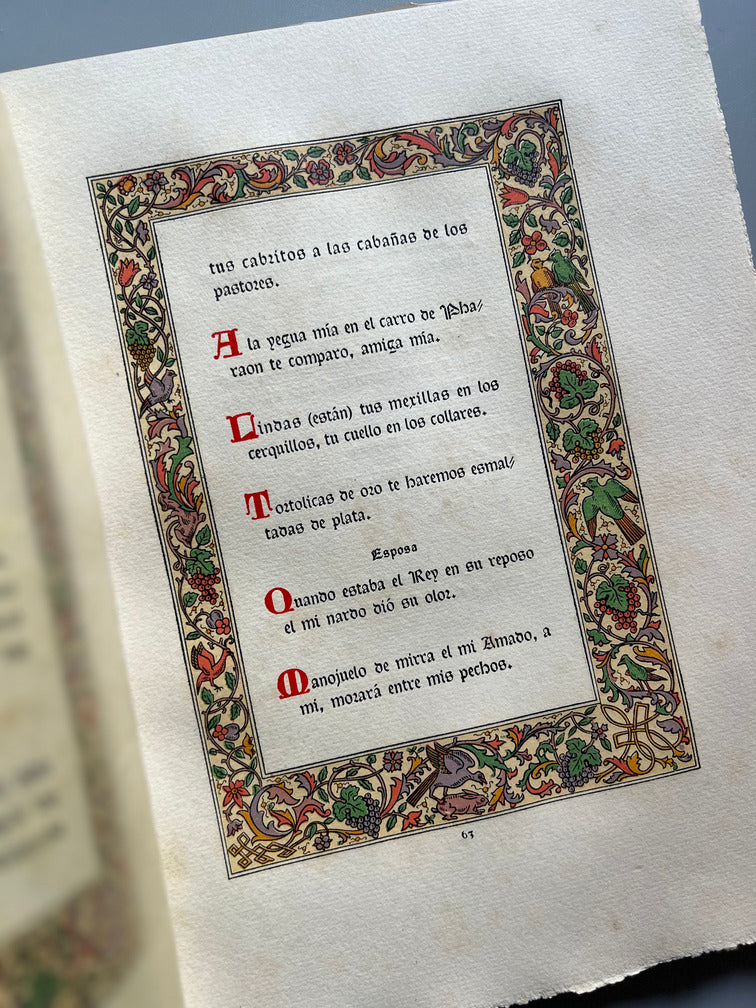 tus cabritos a las cabañas de los
pastores.
A la yegua mía en el carro de Pha/
raon te comparo, amiga mía.
Lindas (están) tus mexillas en los
cerquillos, tu cuello en los collares.
Tortolicas de oro te haremos esmal/
tadas de plata.
Esposa
Quando estaba el Rey en su reposo
el mi nardo dió su olor.
Manojuelo de mirra el mi Amado, a
mi, morará entre mis pechos.
63